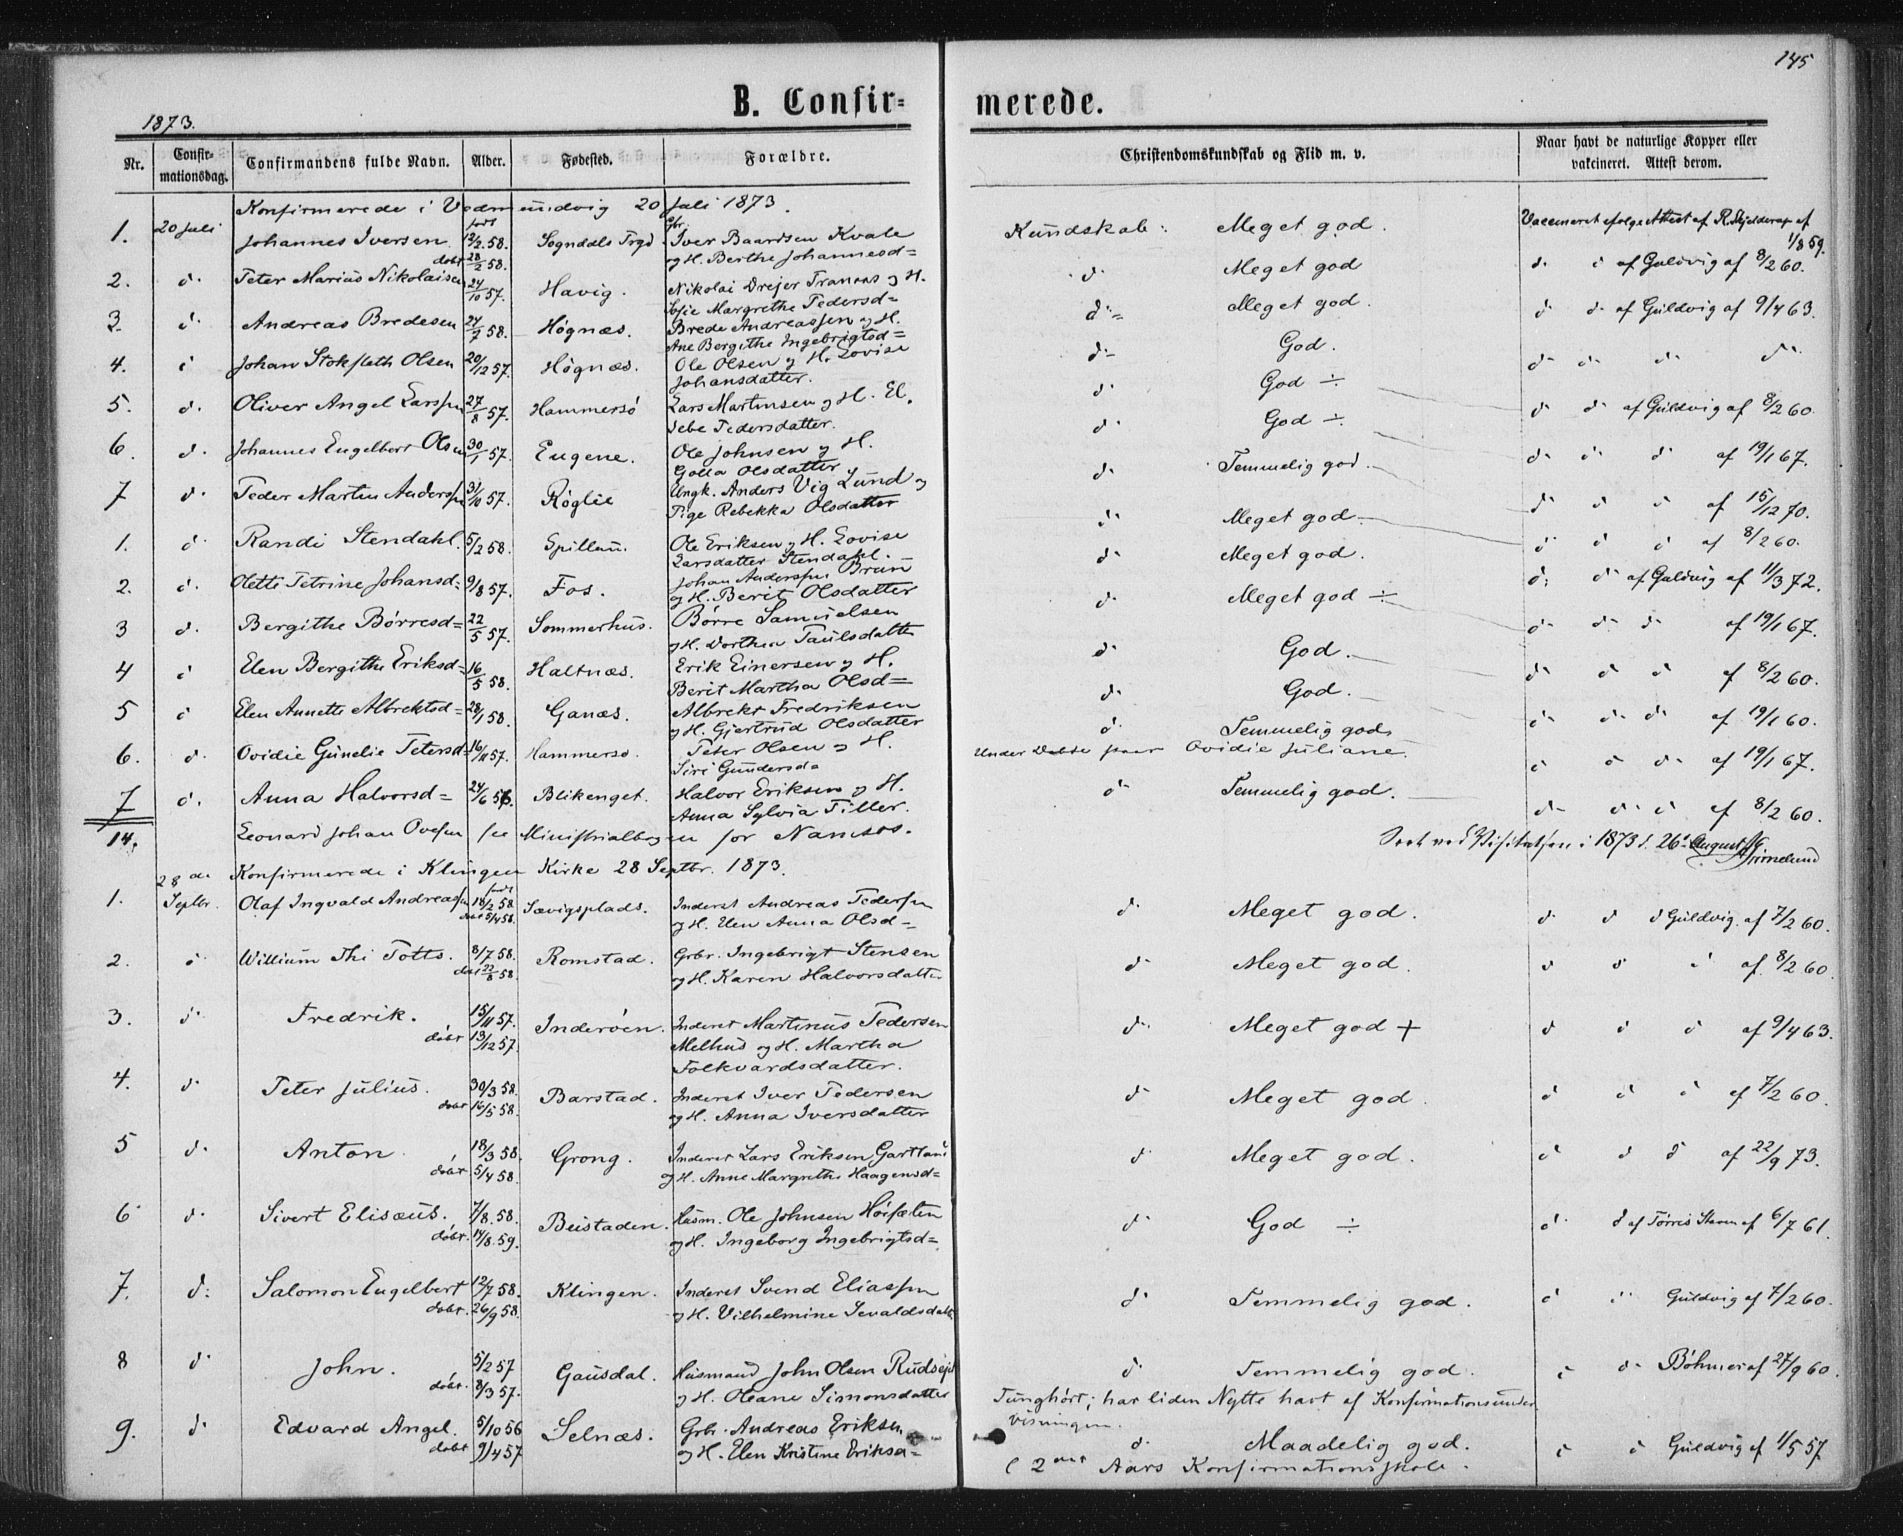 145
B. Confirmerede.
1873.
Nr. Confirmationsdag. Confirmandens fulde Navn. Alder. Fødested. Forældre. Christendomskundskab og Flid m. v. Naar havt de naturlige Kopper eller vakcineret. Attest derom.
Konfirmerede i Vedmundvig 20 Juli 1873.
1. 20 Juli Johannes Iversen født 12/2 58. Sogndals Prgd Iver Baardsen Kvale Kundskab: Meget god. Vaccineret efølge Attest af R. Hjelderup af 1/8 59.
døbt 28/2 58. og H. Berthe Johannesd=
2. d. Peter Marius Nikolaisen 24/10 57. Havig. Nikolai Drejer Tranaas og H. d. Meget god d. d af Guldvig af 8/2 60.
Sofie Margrethe Pedersd=
3. d. Andreas Bredesen 24/7 58. Høgnæs. Brede Andreassen og H. d= Meget god. d d. af Guldvig af 9/4 63.
Ane Bergithe Ingebrigtsd=
4. d Johan Stoksleth Olsen 20/12 57. Høgnæs. Ole Olsen og H. Lovise d= God. d d. d. d.
Johansdatter.
5. d. Oliver Angel Larssen 27/8 57. Hammersø Lars Martinsen og H. El. d God ÷ d d. af Guldvig af 8/2 60.
sebe Pedersdatter.
6. d. Johannes Engelbert Olsen 30/1 57. Eugene. Ole Johnsen og H. d. God ÷. d. d. d. af 19/1 67.
Golla Olsdatter
7 d. Peder Martin Anderssen 31/10 57. Røglie Ungk. Anders Vig Lund og d Temmelig god. d d d af 15/12 70.
Pige Rebekka Olsdatter
1. d Randi Stendahl. 5/2 58. Spillum. Ole Eriksen og H. Lovise d. Meget god. d d d af 8/2 60.
Larsdatter Stendahl.
2. d. Olette Petrine Johansd= 9/8 57. Fos. Johan Anderssen Brun d Meget god. d. d. af Guldvig af 11/3 72.
og H. Berit Olsdatter
3 d. Bergithe Børresd= 22/5 57. Sommerhus. Børre Samuelsen d. Meget god ÷ d. d. d. af 19/1 67.
og H. Dorthea Paulsdatter
4 d Elen Bergithe Eriksd= 16/5 58. Haltnæs. Erik Einersen og H. d. God. d d. d af 8/2 60.
Berit Martha Olsd=
5 d Elen Annette Albrektsd= 28/1 58. Ganæs. Albrekt Fredriksen d. God. d. d. d. af 19/1 60.
og H. Gjertrud Olsdatter
6. d. Ovidie Gunelie Petersd= 16/11 57. Hammersø. Peter Olsen og H. d. Temmelig god d d d. af 19/1 67.
Siri Gundersda Under Daabe Ovidie Juliane.
7 d. Anna Halvorsd= 24/6 56. Blikenget. Halvor Eriksen og H. d. Temmelig god. d. d. d af 8/2 60.
Anna Sylvia Tiller.
14. Leonard Johan Ovesen see Ministrialbogen for Namsos.
Seet ved Visitatsen i 1873 d. 26de August
Konfirmerede i Klingen Kirke 28 Septbr. 1873.
1. 28de Septbr. Olaf Ingvald Andreassen født 18/2 58 Sævigsplads. Inderst Andreas Pedersen d. Meget god. d d d Guldvig. af 7/2 60.
døbt 5/4 58. og H. Elen Anna Olsd=
2. d Willium Thi Potts. 8/7 58. Romstad. Grbr. Ingebrigt Stensen d. Meget god. d d d af 8/2 60.
døbt 22/8 58. og H. Karen Halvorsdatter
3. d. Fredrik. 15/11 57. Inderøen. Inderst Martinus Pedersen d. Meget god + d d d af 9/4 63.
døbt 13/12 57. Melhus og H. Martha
Folkvardsdatter.
4. d. Peter Julius. 30/3 58. Barstad. Inderst Iver Pedersen d Meget god. d d d af 7/2 60.
døbt 16/5 58. og H. Anna Iversdatter
5 d. Anton 18/3 58. Grong. Inderst Lars Eriksen Gartland d. Meget god. d d d af 22/9 73.
døbt 5/4 58. og H. Anne Margrethe Haagensd=
6 d. Sivert Elisæus. 7/8. 58. Beistaden. Husm. Ole Johnsen Høisæten d. God ÷ d. d af Tørris Steen af 6/7 61.
døbt. 14/8. 59. og H. Ingeborg Ingebrigtsd=
7. d: Salomon Engelbert 12/7 58. Klingen. Inderst Svend Eliassen d. Temmelig god. d d Guldvig af 7/2 60.
døbt. 26/9 58. og H. Vilhelmine Sevaldsdatter
8 d. John. 5/2 57 Gausdal. Husmand John Olsen Rudsejet d. Temmelig god. d d. Böhmer af 27/9 60.
døbt. 8/3 57. og H. Oleane Simonsdatter Tunghørt; har liden Nytte havt af Konfirmationsunder
visningen.
9. d. Edvard Angel. 5/10 56 Selnæs. Grbr. Andreas Eriksen d. Maadelig god. d d Guldvig af 1/5 57.
døbt 9/4 57 og H. Elen Kristine Eriksd= 2det Aars Konfirmationsskole.